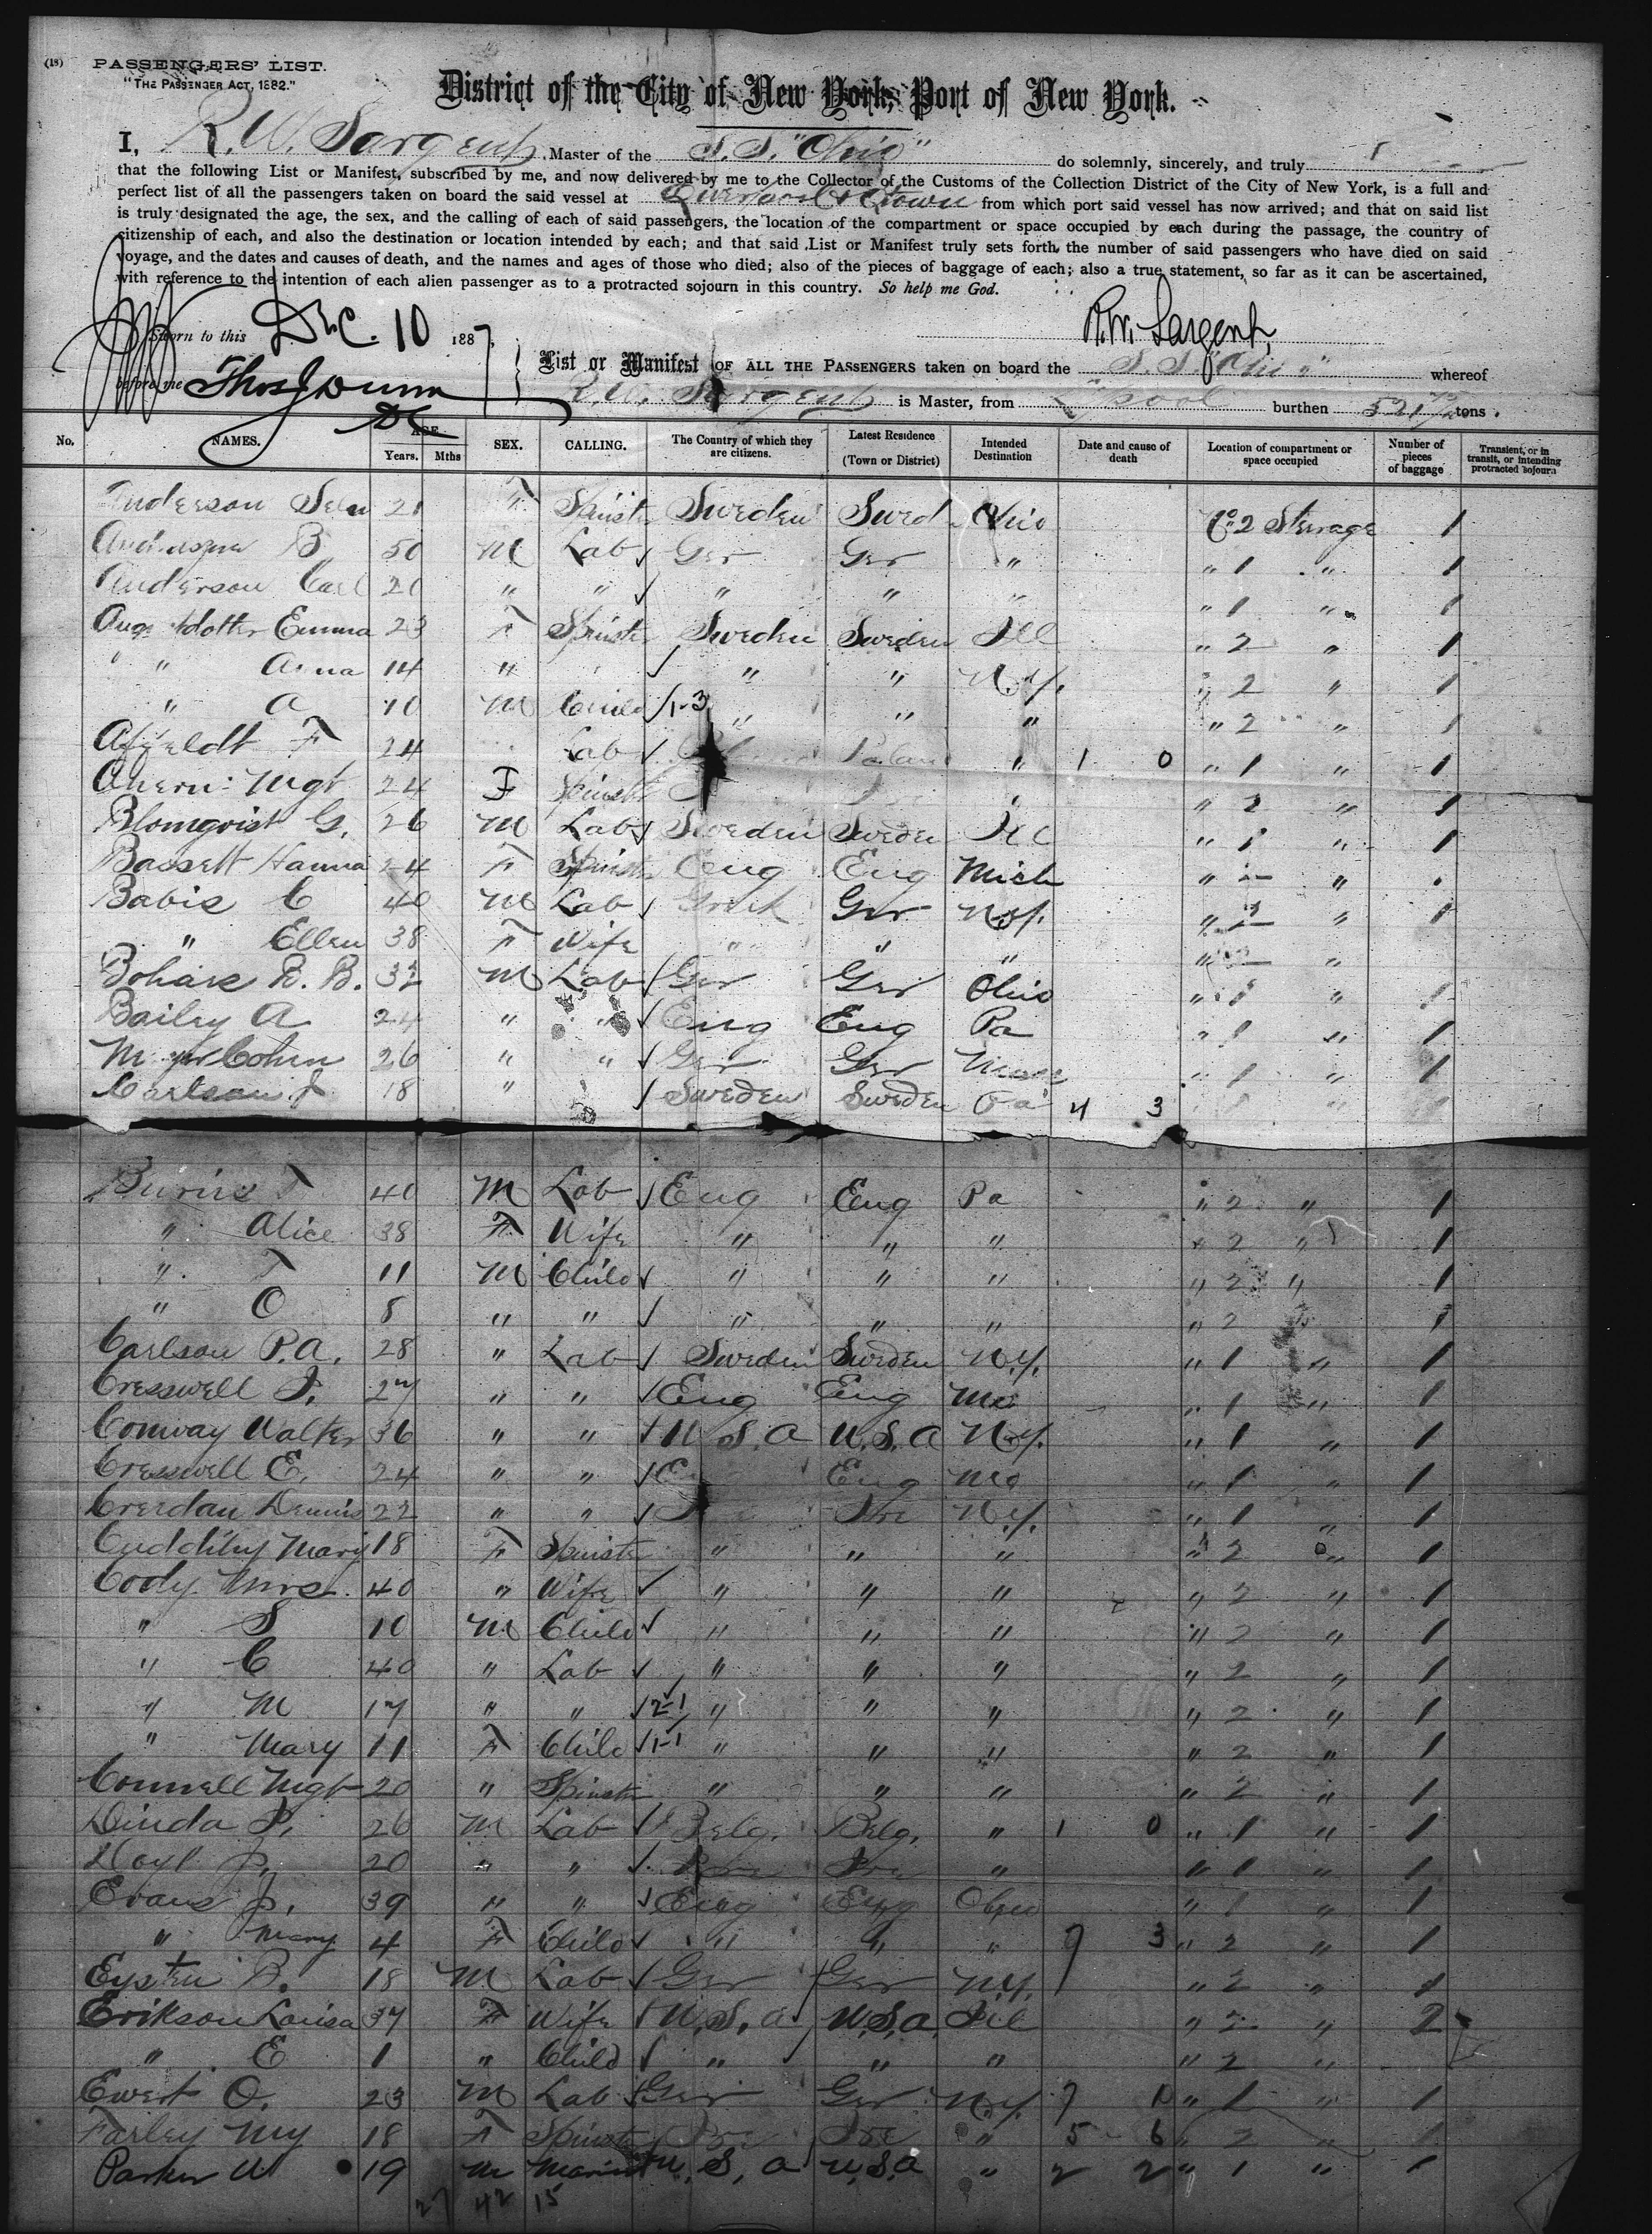 (18) PASSENGERS' LIST.
"THE PASSENGER ACT, 1882."
District of the City of New York, Port of New York.
I, R. W. Sargent, Master of the S.S. "Ohio" do solemnly, sincerely, and truly
that the following List or Manifest, subscribed by me, and now delivered by me to the Collector of the Customs of the Collection District of the City of New York, is a full and
perfect list of all the passengers taken on board the said vessel at Liverpool & Qtown from which port said vessel has now arrived; and that on said list
is truly designated the age, the sex, and the calling of each of said passengers, the location of the compartment or space occupied by each during the passage, the country of
citizenship of each, and also the destination or location intended by each; and that said List or Manifest truly sets forth the number of said passengers who have died on said
voyage, and the dates and causes of death, and the names and ages of those who died; also of the pieces of baggage of each; also a true statement, so far as it can be ascertained,
with reference to the intention of each alien passenger as to a protracted sojourn in this country. So help me God.
R. W. Sargent,
Sworn to this Dec. 10 1887,
before me Thos J Dunn
DC
List or Manifest OF ALL THE PASSENGERS taken on board the S.S. "Ohio" whereof
R. W. Sargent is Master, from L'pool burthen tons.
No. NAMES. AGE. Years. Mths SEX. CALLING. The Country of which they are citizens. Latest Residence (Town or District) Intended Destination Date and cause of death Location of compartment or space occupied Number of pieces of baggage Transient, or in transit, or intending protracted sojourn
Anderson 21 F Spinstr Sweden Swed Ohio 2 Steerage 1
B 50 M Lab Ger Ger " " 1 " 1
Anderson Carl 20 " " " " " " 1 " 1
Emma 23 F Spinstr Sweden Sweden Ill " 2 " 1
" Anna 14 " " " N.Y. " 2 " 1
" A 10 M Child 1-3 " " " " 2 " 1
Affeldt F 24 Lab " 1 0 " 1 " 1
Ahern Mgt 24 F Spinstr " 2 " 1
Blomqvist G. 26 M Lab Sweden Sweden Ill " 1 " 1
Bassett Hanna 24 F Spinstr Eng Eng Mich " "
Babis C 40 M Lab Ger N.Y. " " 1
" Ellen 38 F Wife " " " " "
R. B. 32 M Lab Ger Ger Ohio " 1 " 1
Bailey A 24 " " Eng Eng Pa " 1 " 1
Cohen 26 " " Ger Ger " 1 " 1
Carlson J 18 " Sweden Sweden Pa 4 3 1
Burins T 40 M Lab Eng Eng Pa " 2 " 1
" Alice 38 F Wife " " " " 2 " 1
" T 11 M Child " " " " 2 " 1
" O 8 " " " " " " 2 " 1
Carlson P.A. 28 " Lab Sweden Sweden N.Y. " 1 " 1
Cresswell J. 27 " " Eng Eng Mo " 1 " 1
Conway Walter 36 " " U.S.A U.S.A N.Y. " 1 " 1
Cresswell E. 24 " " Eng Mo " 1 " 1
Creedan Dennis 22 " " Ire N.Y. " 1 " 1
Cuddihy Mary 18 F Spinstr " " " " 2 " 1
Cody Mrs 40 " Wife " " " " 2 " 1
" S 10 M Child " " " " 2 " 1
" C 40 " Lab " " " " 2 " 1
" M 17 " " 2-1 " " " " 2 " 1
" Mary 11 F Child 1-1 " " " " 2 " 1
Connell Mgt 20 " Spinstr " " " " 2 " 1
Dinda P. 26 M Lab Belg. Belg. " 1 0 " 1 " 1
Doyl J. 20 " " Ire Ire " " 1 " 1
Evans J. 39 " " Eng Eng Ohio " 1 " 1
" Mary 4 F Child " " " 9 3 " 2 " 1
Eysten B. 18 M Lab Ger Ger N.Y. " 2 " 1
Erikson Louisa 37 F Wife U.S.A U.S.A Ill " 2 " 2
" E 1 " Child " " " " 2 "
Ewert O. 23 M Lab Ger Ger N.Y. 7 " 1 " 1
Farley My 18 F Spinstr Ire Ire " 5 6 " 2 " 1
Parker W 19 M U.S.A U.S.A " 2 2 " 1 " 1
27 42 15